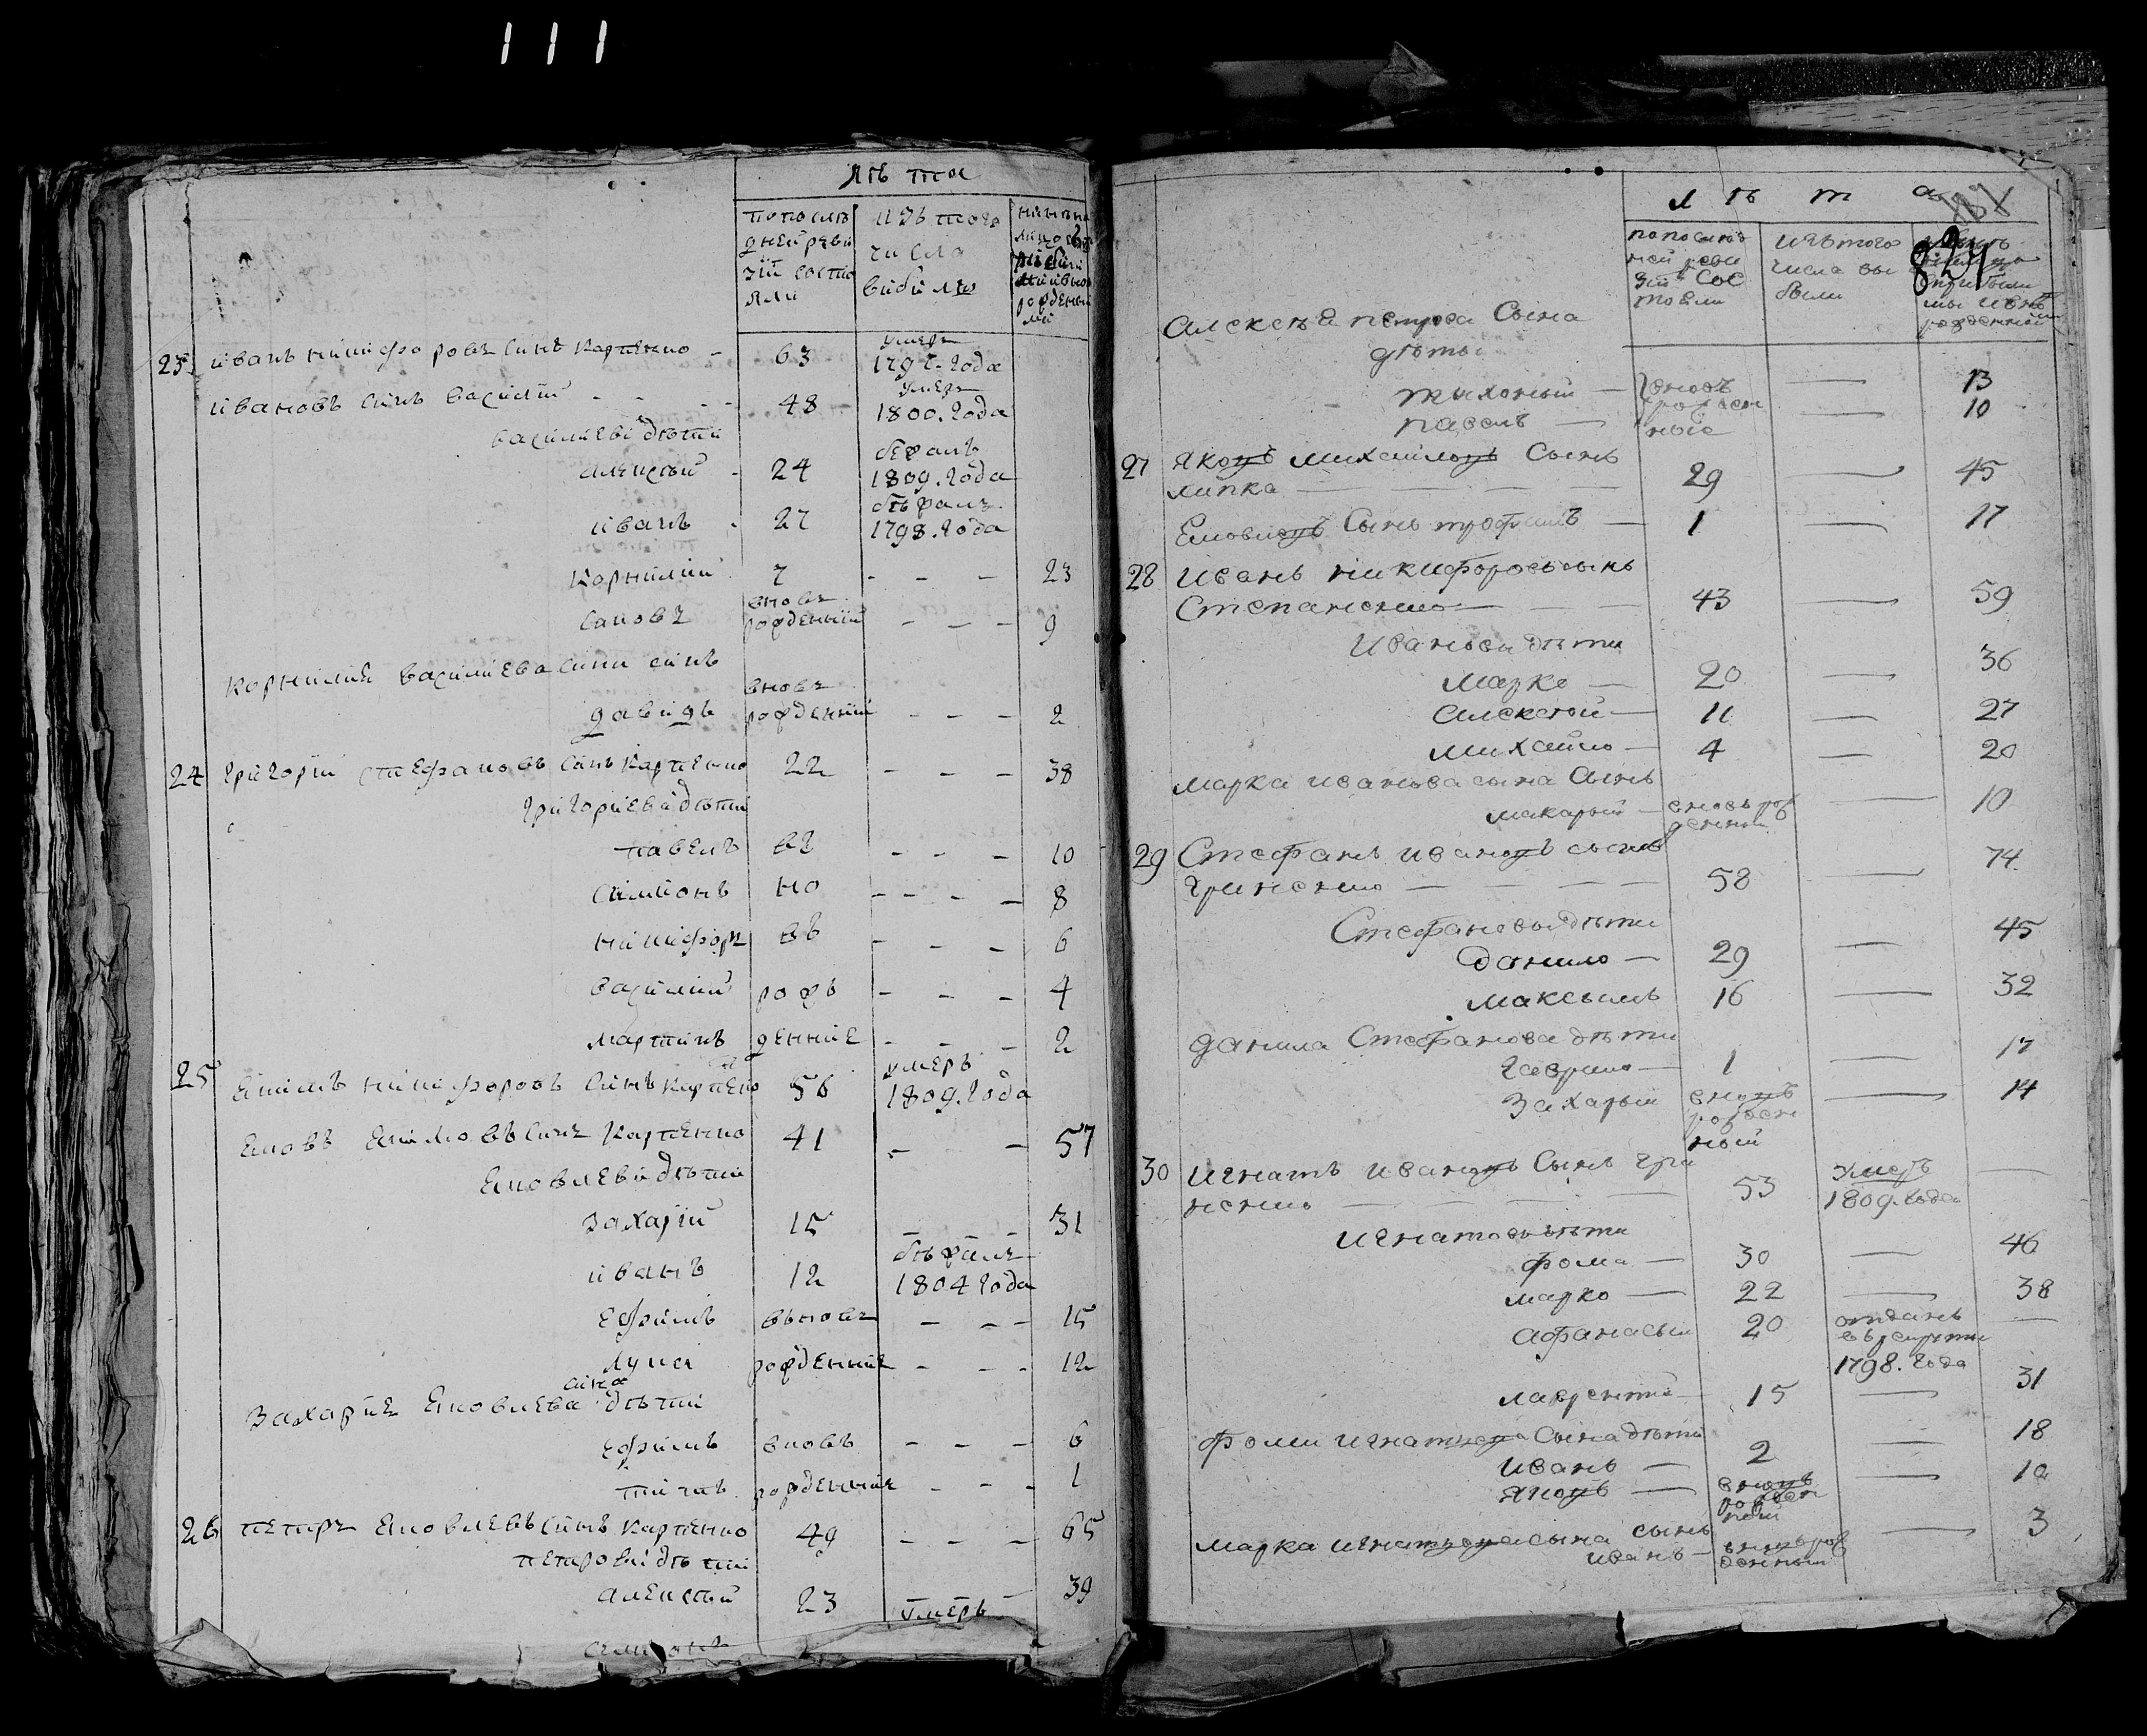 111
лѣта
попослѣ
дней реви
зіи состо
яли
изъ того
числа
вибило
23 иванъ никифоровъ синъ Карпенко - 63 умеръ 1797. года
ивановъ синъ василій - - - 48 умеръ 1800. года
василиеві дѣти
алексѣй - 24 бежалъ 1809. года
иванъ . 27 бѣжалъ 1798. года
Корнилій 7 - - - 23
вновъ рожденный - - - 9
Корнилия василиева сина синъ
давидъ вновъ рожденній - - - 2
24 григорій стефановъ синъ Карпенко 22 - - - 38
григориеві дѣти
павелъ вг - - - 10
симионъ но - - - 8
никифоръ въ - - - 6
василий рож - - - 4
мартинъ денние - - - 2
25 екимъ никифоровъ синъ карпенко 56 умеръ 1809. года
яковъ екимовъ синъ Карпенко 41 - - 57
яковлеви дѣти
Захарій 15 - - - 31
иванъ 12 бѣжалъ 1804 года
ефимъ вновъ - - - 15
лука рожденние - - - 12
Захария яковлева сина дѣти
ефимъ вновъ - - - 6
титъ рожденние - - - 1
26 петръ яковлевъ синъ Карпенко 49 - - - 65
петрови дѣти
алексѣй 23 39
умеръ
симионъ
лѣта
824
попослѣд
ней реви
зіи сос
тояли
изъ того
числа вы
были
Алексѣя петрова Сына
дѣти
тихоный — вновъ — 13
павелъ — рожден ные — 10
27 Яковъ михайловъ Сынъ
липка — 29 — 45
Еховъ Сынъ трофимъ — 1 — 17
28 Иванъ никифоровъ сынъ
Степаненко — 43 — 59
Ивановы дѣти
марко — 20 — 36
алексѣй — 11 — 27
михайло — 4 — 20
марка иванова сына Сынъ
макарый — вновь рож денный — 10
29 Стефанъ ивановъ сынъ
гриненко — 58 — 74
Стефановы дѣти
данило — 29 — 45
максымъ 16 — 32
данила Стефанова дѣти
гаврило — 1 — 17
Захарый вновъ рожден ный — 14
30 игнатъ ивановъ Сынъ гри
ненко — 53 умеръ 1809. года —
игнатовы дѣти
фома — 30 — 46
марко — 22 — 38
афанасый 20 отданъ въ рекруты 1798. года —
лаврентій — 15 — 31
фоми игнатова Сына дѣти
иванъ — 2 — 18
яковъ — вновъ рожден ный — 10
марка игнатова сына сынъ
иванъ — вновь рож денный — 3